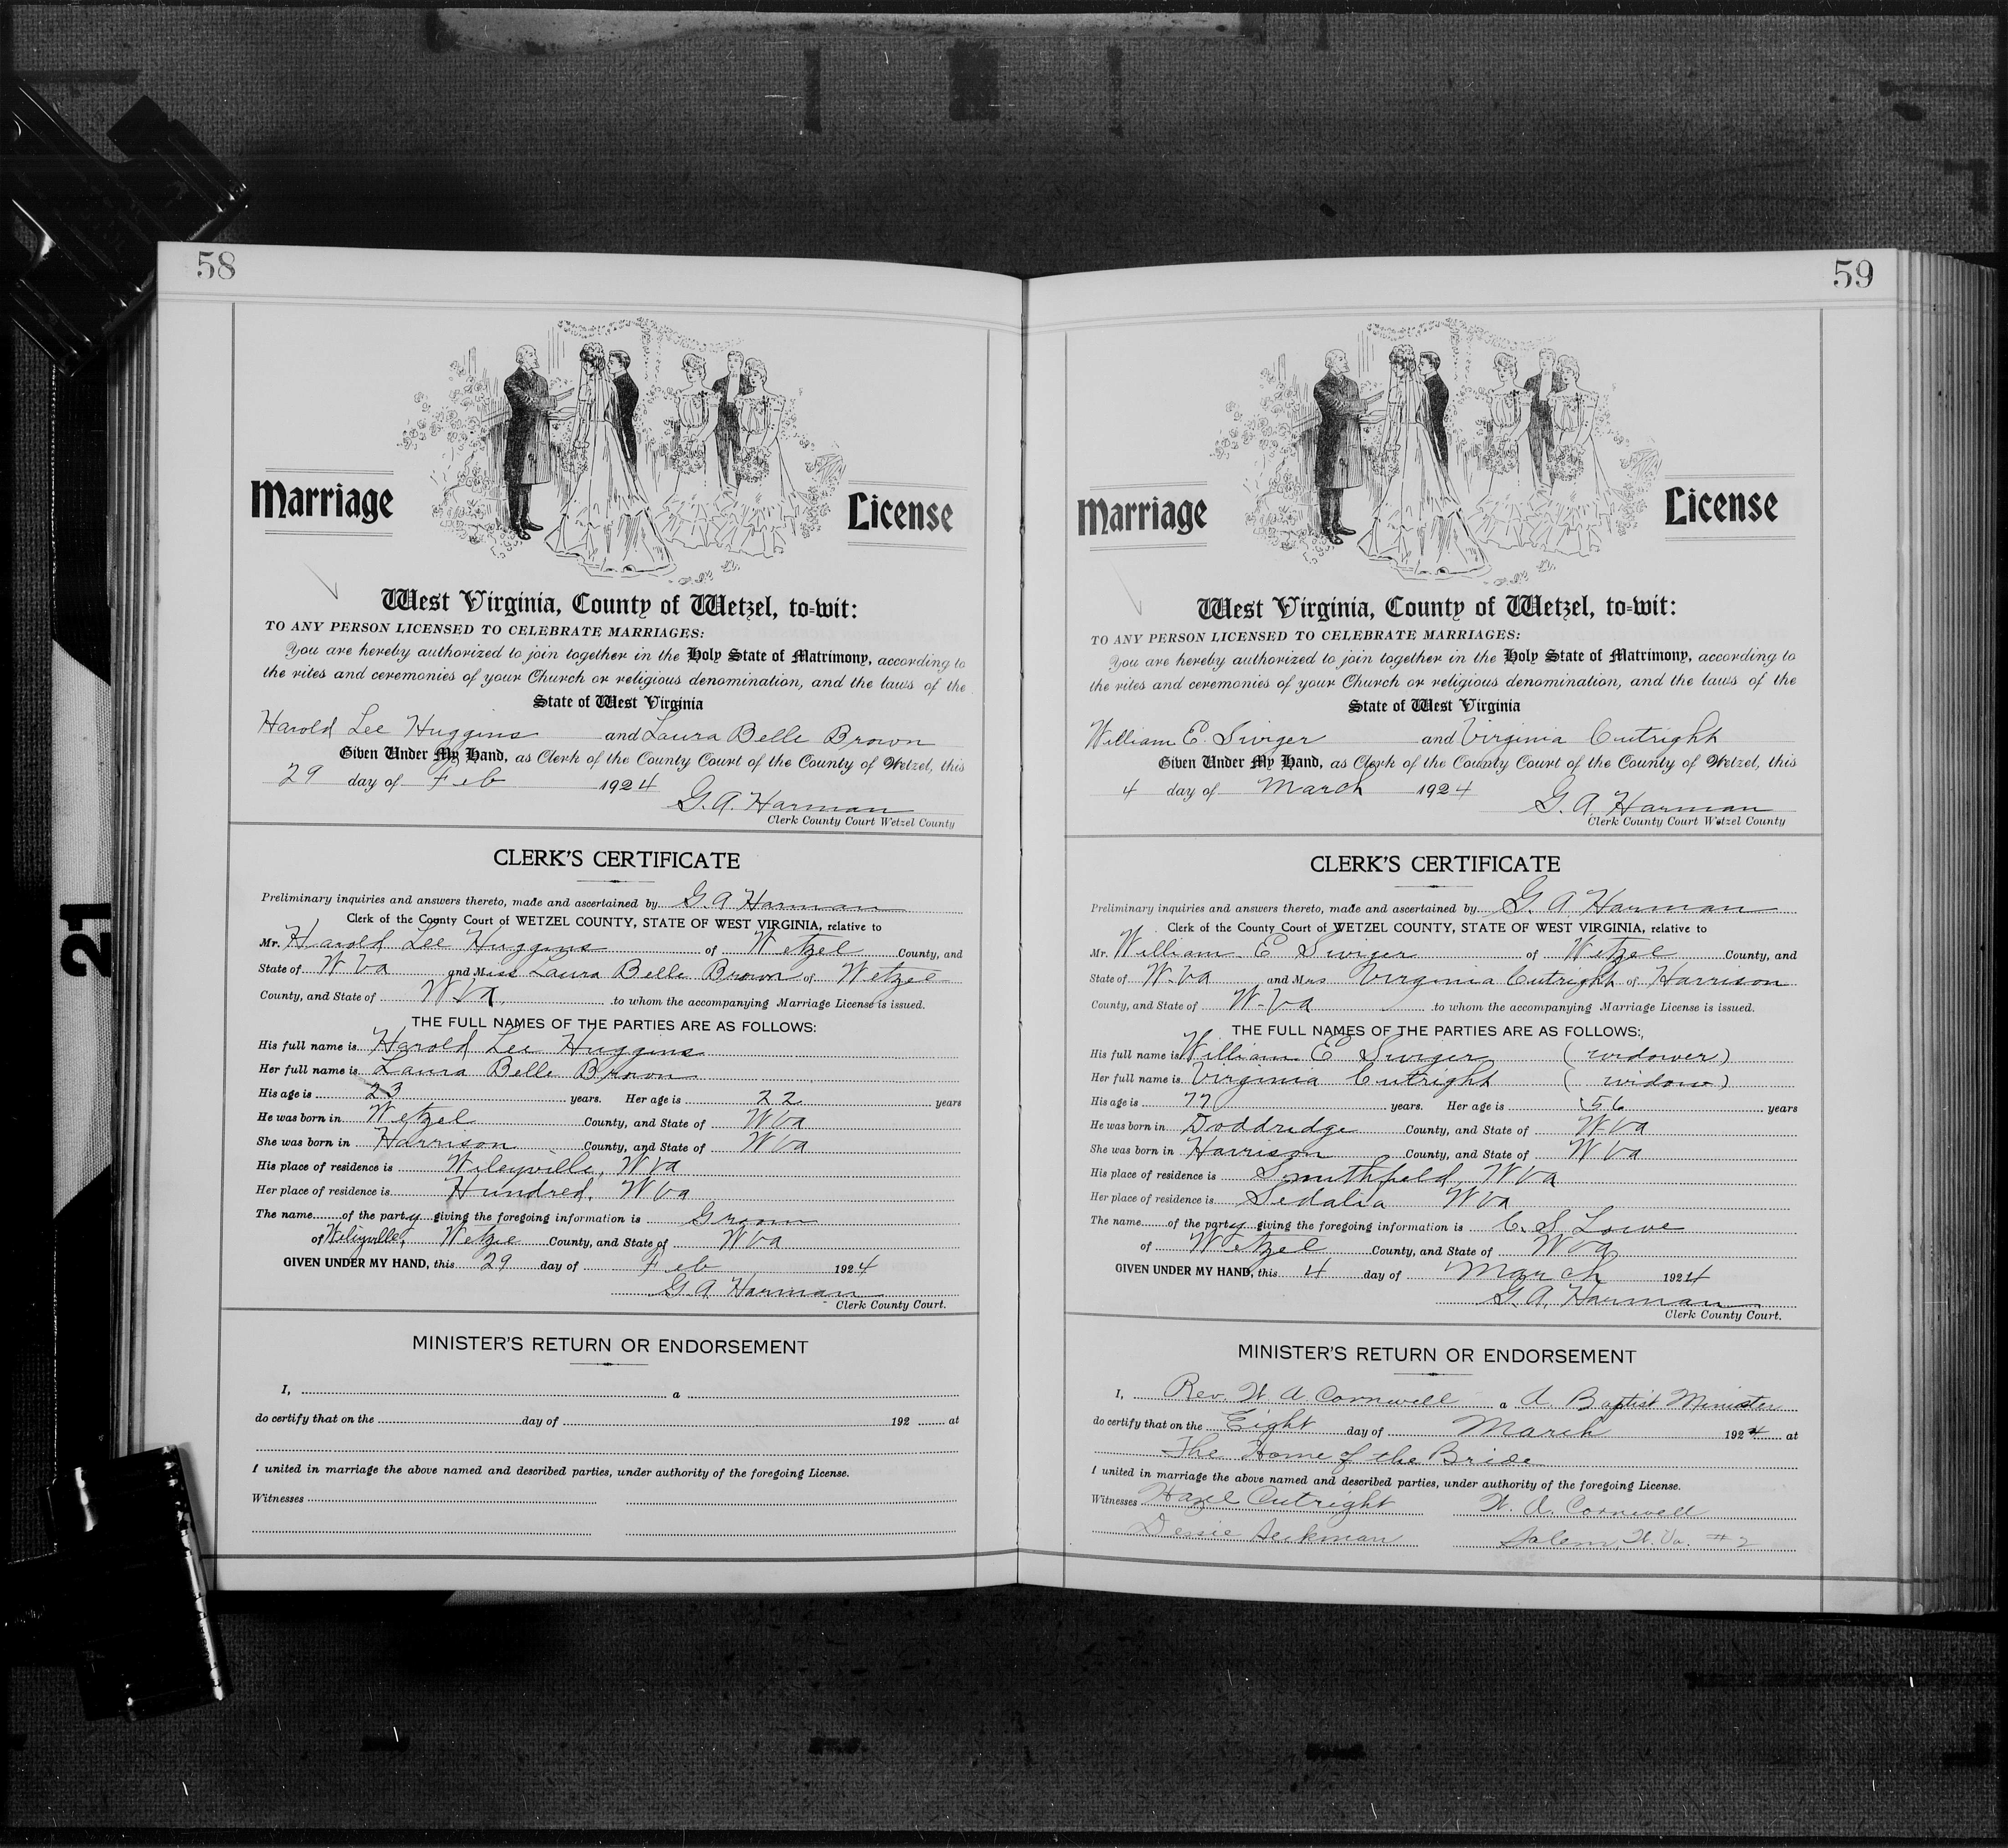 58
Marriage License
West Virginia, County of Wetzel, to-wit:
TO ANY PERSON LICENSED TO CELEBRATE MARRIAGES:
You are hereby authorized to join together in the Holy State of Matrimony, according to
the rites and ceremonies of your Church or religious denomination, and the laws of the
State of West Virginia
Harold Lee Huggins and Laura Belle Brown
Given Under My Hand, as Clerk of the County Court of the County of Wetzel, this
29 day of Feb 1924
G. A. Harman
Clerk County Court Wetzel County
CLERK'S CERTIFICATE
Preliminary inquiries and answers thereto, made and ascertained by G. A Harman
Clerk of the County Court of WETZEL COUNTY, STATE OF WEST VIRGINIA, relative to
Mr. Harold Lee Huggins of Wetzel County, and
State of W Va and Miss Laura Belle Brown of Wetzel
County, and State of W Va. to whom the accompanying Marriage License is issued.
THE FULL NAMES OF THE PARTIES ARE AS FOLLOWS:
His full name is Harold Lee Huggins
Her full name is Laura Belle Brown
His age is 23 years. Her age is 22 years
He was born in Wetzel County, and State of W Va
She was born in Harrison County, and State of W Va
His place of residence is Wileyville, W Va
Her place of residence is Hundred, W Va
The name of the party giving the foregoing information is Groom
of Wileyville, Wetzel County, and State of W Va
GIVEN UNDER MY HAND, this 29 day of Feb 1924
G. A. Harman
Clerk County Court.
MINISTER'S RETURN OR ENDORSEMENT
I, a
do certify that on the day of 192 at
I united in marriage the above named and described parties, under authority of the foregoing License.
Witnesses
59
Marriage License
West Virginia, County of Wetzel, to-wit:
TO ANY PERSON LICENSED TO CELEBRATE MARRIAGES:
You are hereby authorized to join together in the Holy State of Matrimony, according to
the rites and ceremonies of your Church or religious denomination, and the laws of the
State of West Virginia
William E. Swiger and Virginia Cutright
Given Under My Hand, as Clerk of the County Court of the County of Wetzel, this
4 day of March 1924
G. A. Harman
Clerk County Court Wetzel County
CLERK'S CERTIFICATE
Preliminary inquiries and answers thereto, made and ascertained by G. A Harman
Clerk of the County Court of WETZEL COUNTY, STATE OF WEST VIRGINIA, relative to
Mr. William E Swiger of Wetzel County, and
State of W-Va and Mrs Virginia Cutright of Harrison
County, and State of W-Va to whom the accompanying Marriage License is issued.
THE FULL NAMES OF THE PARTIES ARE AS FOLLOWS:
His full name is William E Swiger (widower)
Her full name is Virginia Cutright (widow)
His age is 77 years. Her age is 56 years
He was born in Doddridge County, and State of W-Va
She was born in Harrison County, and State of W Va
His place of residence is Smithfield, W Va
Her place of residence is Sedalia W Va
The name of the party giving the foregoing information is C. S. Lowe
of Wetzel County, and State of W Va
GIVEN UNDER MY HAND, this 4 day of March 1924
G. A. Harman
Clerk County Court.
MINISTER'S RETURN OR ENDORSEMENT
I, Rev. W. A. Cornwell a A. Baptist Minister
do certify that on the Eight day of March 1924 at
The Home of the Bride
I united in marriage the above named and described parties, under authority of the foregoing License.
Witnesses Hazel Cutright W. A. Cornwell
Dessie Salem, W. Va. #2
21